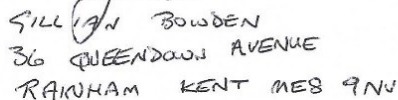 GILLIAN BOWDEN
36 QUEENDOWN AVENUE
RAINHAM KENT ME8 9NU